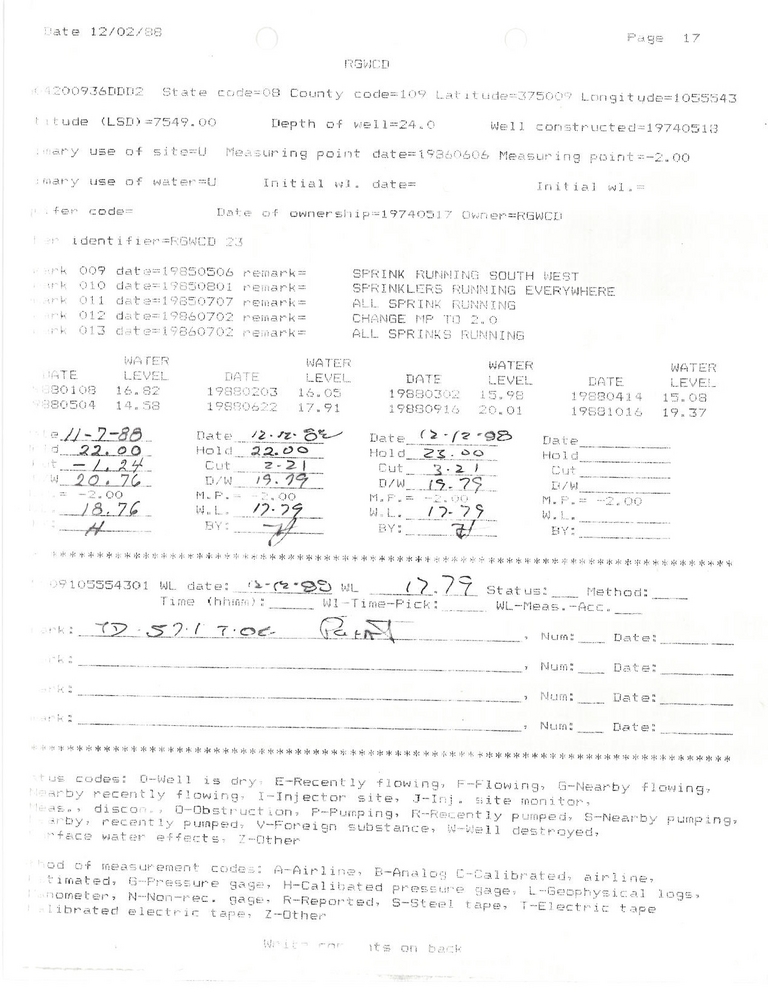 Date 12/02/88 Page 17
RGWCD
04200936DDD2 State code=08 County code=109 Latitude=375009 Longitude=1055543
titude (LSD)=7549.00 Depth of well=24.0 Well constructed=19740518
imary use of site=U Measuring point date=19860606 Measuring point=-2.00
imary use of water=U Initial wl. date= Initial wl.=
uifer code= Date of ownership=19740517 Owner=RGWCD
er identifier=RGWCD 23
ark 009 date=19850506 remark= SPRINK RUNNING SOUTH WEST
ark 010 date=19850801 remark= SPRINKLERS RUNNING EVERYWHERE
ark 011 date=19850707 remark= ALL SPRINK RUNNING
ark 012 date=19860702 remark= CHANGE MP TO 2.0
ark 013 date=19860702 remark= ALL SPRINKS RUNNING
WATER WATER WATER WATER
DATE LEVEL DATE LEVEL DATE LEVEL DATE LEVEL
880108 16.82 19880203 16.05 19880302 15.98 19880414 15.08
880504 14.58 19880622 17.91 19880916 20.01 19881016 19.37
te 11-7-88 Date 12-12-88 Date 12-12-88 Date
ld 22.00 Hold 22.00 Hold 23.00 Hold
ut -1.24 Cut 2.21 Cut 3.21 Cut
W 20.76 D/W 19.79 D/W 19.79 D/W
.= -2.00 M.P.= -2.00 M.P.= -2.00 M.P.= -2.00
18.76 W.L. 17.79 W.L. 17.79 W.L.
: H BY: H BY: H BY:
************************************************************
09105554301 WL date: 12-12-88 WL 17.79 Status: Method:
Time (hhmm): WI-Time-Pick: WL-Meas.-Acc.
ark: TD. , Num: Date:
rk: , Num: Date:
ark: , Num: Date:
ark: , Num: Date:
************************************************************
tus codes: D-Well is dry, E-Recently flowing, F-Flowing, G-Nearby flowing,
earby recently flowing, I-Injector site, J-Inj. site monitor,
eas., discon., O-Obstruction, P-Pumping, R-Recently pumped, S-Nearby pumping,
earby, recently pumped, V-Foreign substance, W-Well destroyed,
rface water effects, Z-Other
hod of measurement codes: A-Airline, B-Analog C-Calibrated, airline,
timated, G-Pressure gage, H-Calibated pressure gage, L-Geophysical logs,
nometer, N-Non-rec. gage, R-Reported, S-Steel tape, T-Electric tape
librated electric tape, Z-Other
on back